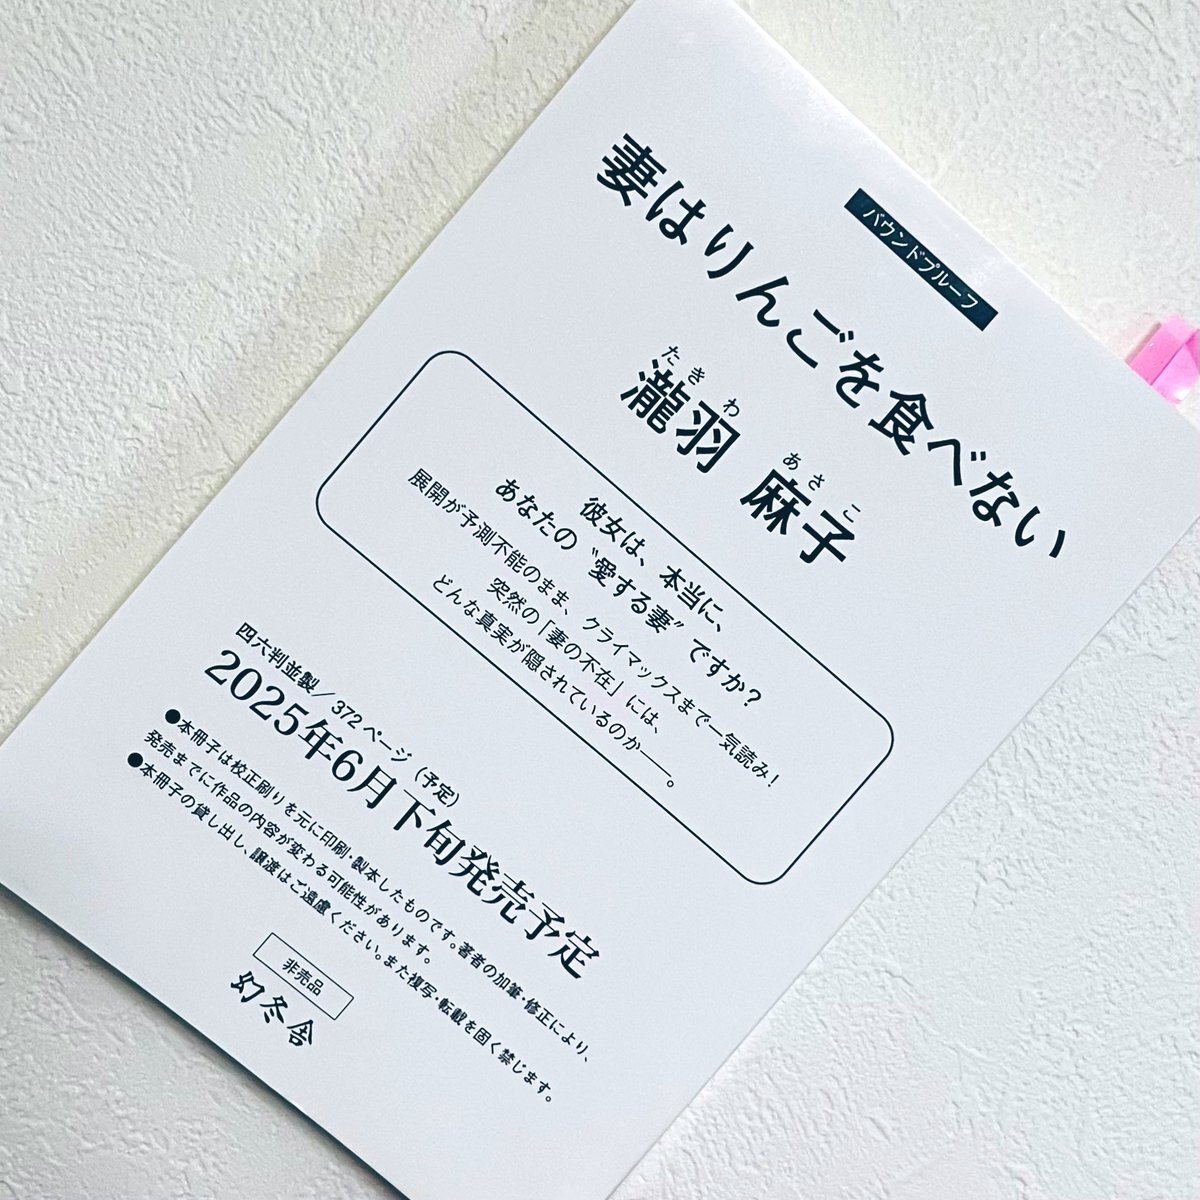 バウンドプルーフ
妻はりんごを食べない
たきわ あさこ
瀧羽 麻子
彼女は、本当に、
あなたの〝愛する妻〟ですか?
展開が予測不能のまま、クライマックスまで一気読み!
突然の「妻の不在」には、
どんな真実が隠されているのか――。
四六判並製/372ページ(予定)
2025年6月下旬発売予定
●本冊子は校正刷りを元に印刷・製本したものです。著者の加筆・修正により、
発売までに作品の内容が変わる可能性があります。
●本冊子の貸し出し、譲渡はご遠慮ください。また複写・転載を固く禁じます。
非売品
幻冬舎